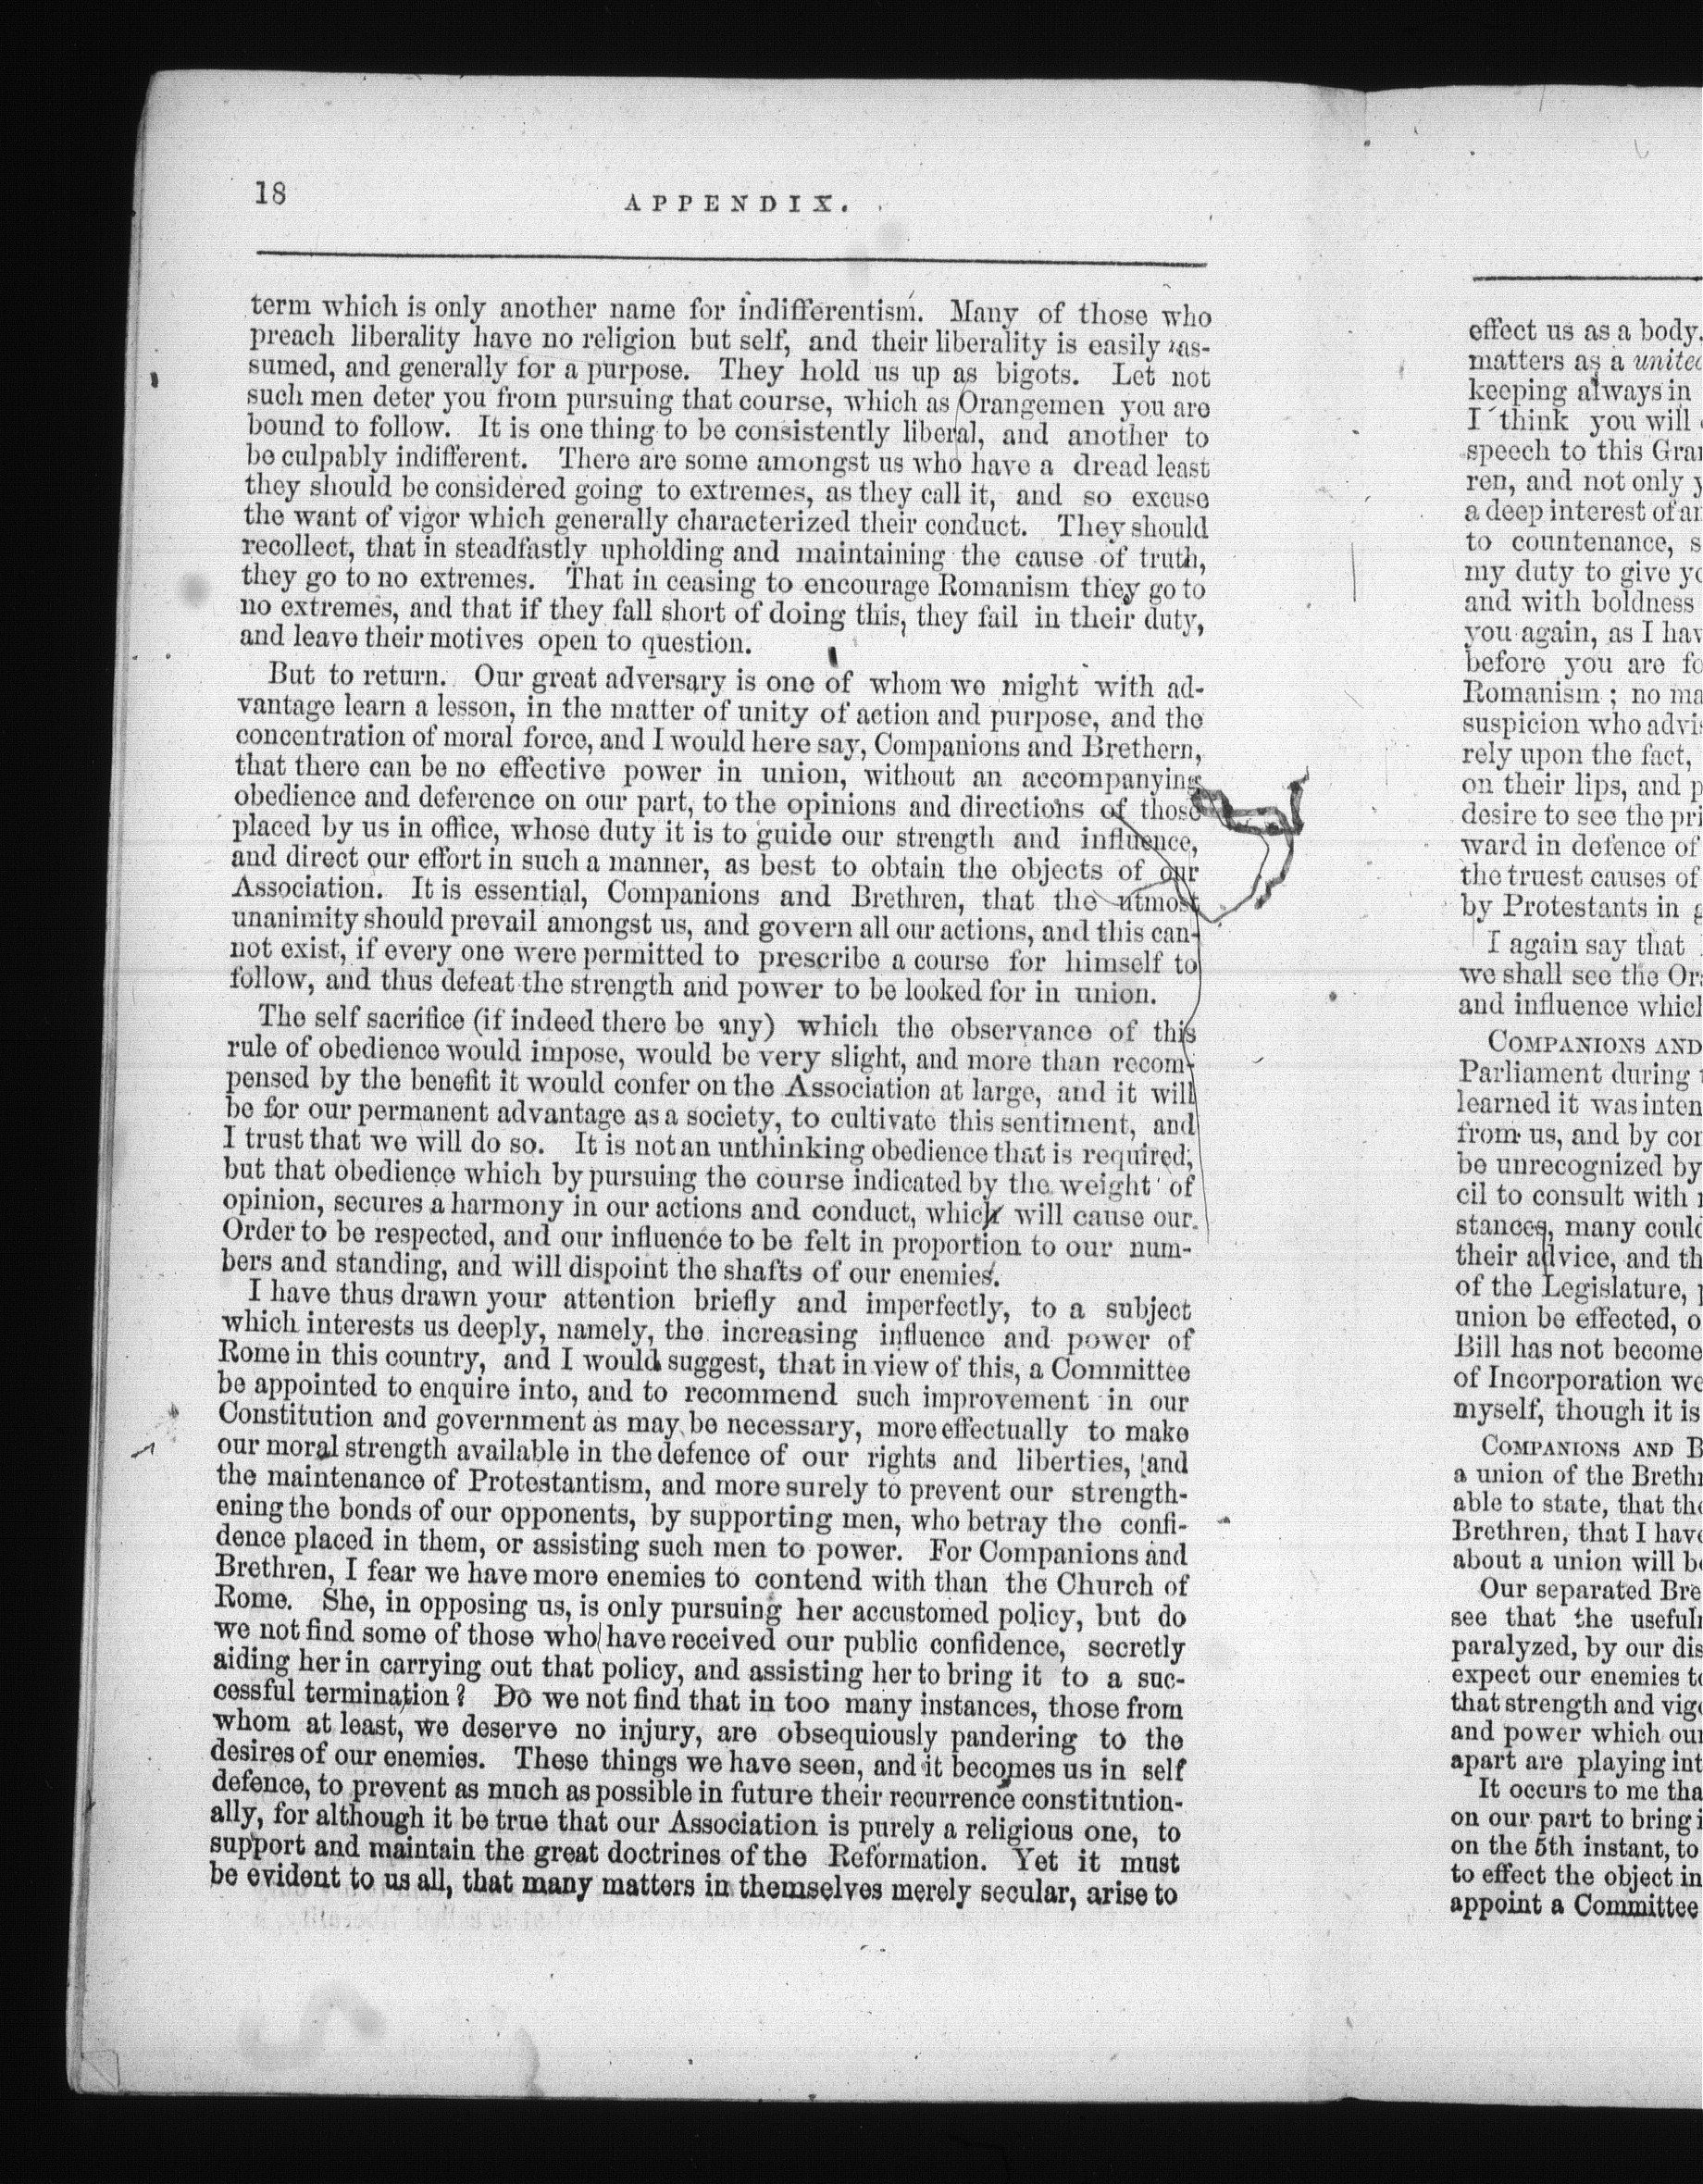 18
APPENDIX.
term which is only another name for indifferentism. Many of those who
preach liberality have no religion but self, and their liberality is easily as-
sumed, and generally for a purpose. They hold us up as bigots. Let not
such men deter you from pursuing that course, which as Orangemen you are
bound to follow. It is one thing to be consistently liberal, and another to
be culpably indifferent. There are some amongst us who have a dread least
they should be considered going to extremes, as they call it, and so excuse
the want of vigor which generally characterized their conduct. They should
recollect, that in steadfastly upholding and maintaining the cause of truth,
they go to no extremes. That in ceasing to encourage Romanism they go to
no extremes, and that if they fall short of doing this, they fail in their duty,
and leave their motives open to question.
But to return. Our great adversary is one of whom we might with ad-
vantage learn a lesson, in the matter of unity of action and purpose, and the
concentration of moral force, and I would here say, Companions and Brethern,
that there can be no effective power in union, without an accompanying
obedience and deference on our part, to the opinions and directions of those
placed by us in office, whose duty it is to guide our strength and influence,
and direct our effort in such a manner, as best to obtain the objects of our
Association. It is essential, Companions and Brethren, that the utmost
unanimity should prevail amongst us, and govern all our actions, and this can-
not exist, if every one were permitted to prescribe a course for himself to
follow, and thus defeat the strength and power to be looked for in union.
The self sacrifice (if indeed there be any) which the observance of this
rule of obedience would impose, would be very slight, and more than recom-
pensed by the benefit it would confer on the Association at large, and it will
be for our permanent advantage as a society, to cultivate this sentiment, and
I trust that we will do so. It is not an unthinking obedience that is required,
but that obedience which by pursuing the course indicated by the weight of
opinion, secures a harmony in our actions and conduct, which will cause our
Order to be respected, and our influence to be felt in proportion to our num-
bers and standing, and will dispoint the shafts of our enemies.
I have thus drawn your attention briefly and imperfectly, to a subject
which interests us deeply, namely, the increasing influence and power of
Rome in this country, and I would suggest, that in view of this, a Committee
be appointed to enquire into, and to recommend such improvement in our
Constitution and government as may be necessary, more effectually to make
our moral strength available in the defence of our rights and liberties, and
the maintenance of Protestantism, and more surely to prevent our strength-
ening the bonds of our opponents, by supporting men, who betray the confi-
dence placed in them, or assisting such men to power. For Companions and
Brethren, I fear we have more enemies to contend with than the Church of
Rome. She, in opposing us, is only pursuing her accustomed policy, but do
we not find some of those who have received our public confidence, secretly
aiding her in carrying out that policy, and assisting her to bring it to a suc-
cessful termination? Do we not find that in too many instances, those from
whom at least, we deserve no injury, are obsequiously pandering to the
desires of our enemies. These things we have seen, and it becomes us in self
defence, to prevent as much as possible in future their recurrence constitution-
ally, for although it be true that our Association is purely a religious one, to
support and maintain the great doctrines of the Reformation. Yet it must
be evident to us all, that many matters in themselves merely secular, arise to
effect us as a body.
matters as a
keeping always in
I think you will
speech to this
ren, and not only
a deep interest of
to countenance,
my duty to give
and with boldness
you again, as I
before you are
Romanism; no
suspicion who
rely upon the fact,
on their lips, and
desire to see the
ward in defence of
the truest causes of
by Protestants in
I again say that
we shall see the
and influence
COMPANIONS AND
Parliament during
learned it was
from us, and by
be unrecognized by
cil to consult with
stances, many
their advice, and
of the Legislature,
union be effected,
Bill has not become
of Incorporation
myself, though it is
COMPANIONS AND
a union of the
able to state, that
Brethren, that I have
about a union will
Our separated
see that the
paralyzed, by our
expect our enemies
that strength and
and power which
apart are playing
It occurs to me
on our part to bring
on the 5th instant, to
to effect the object in
appoint a Committee